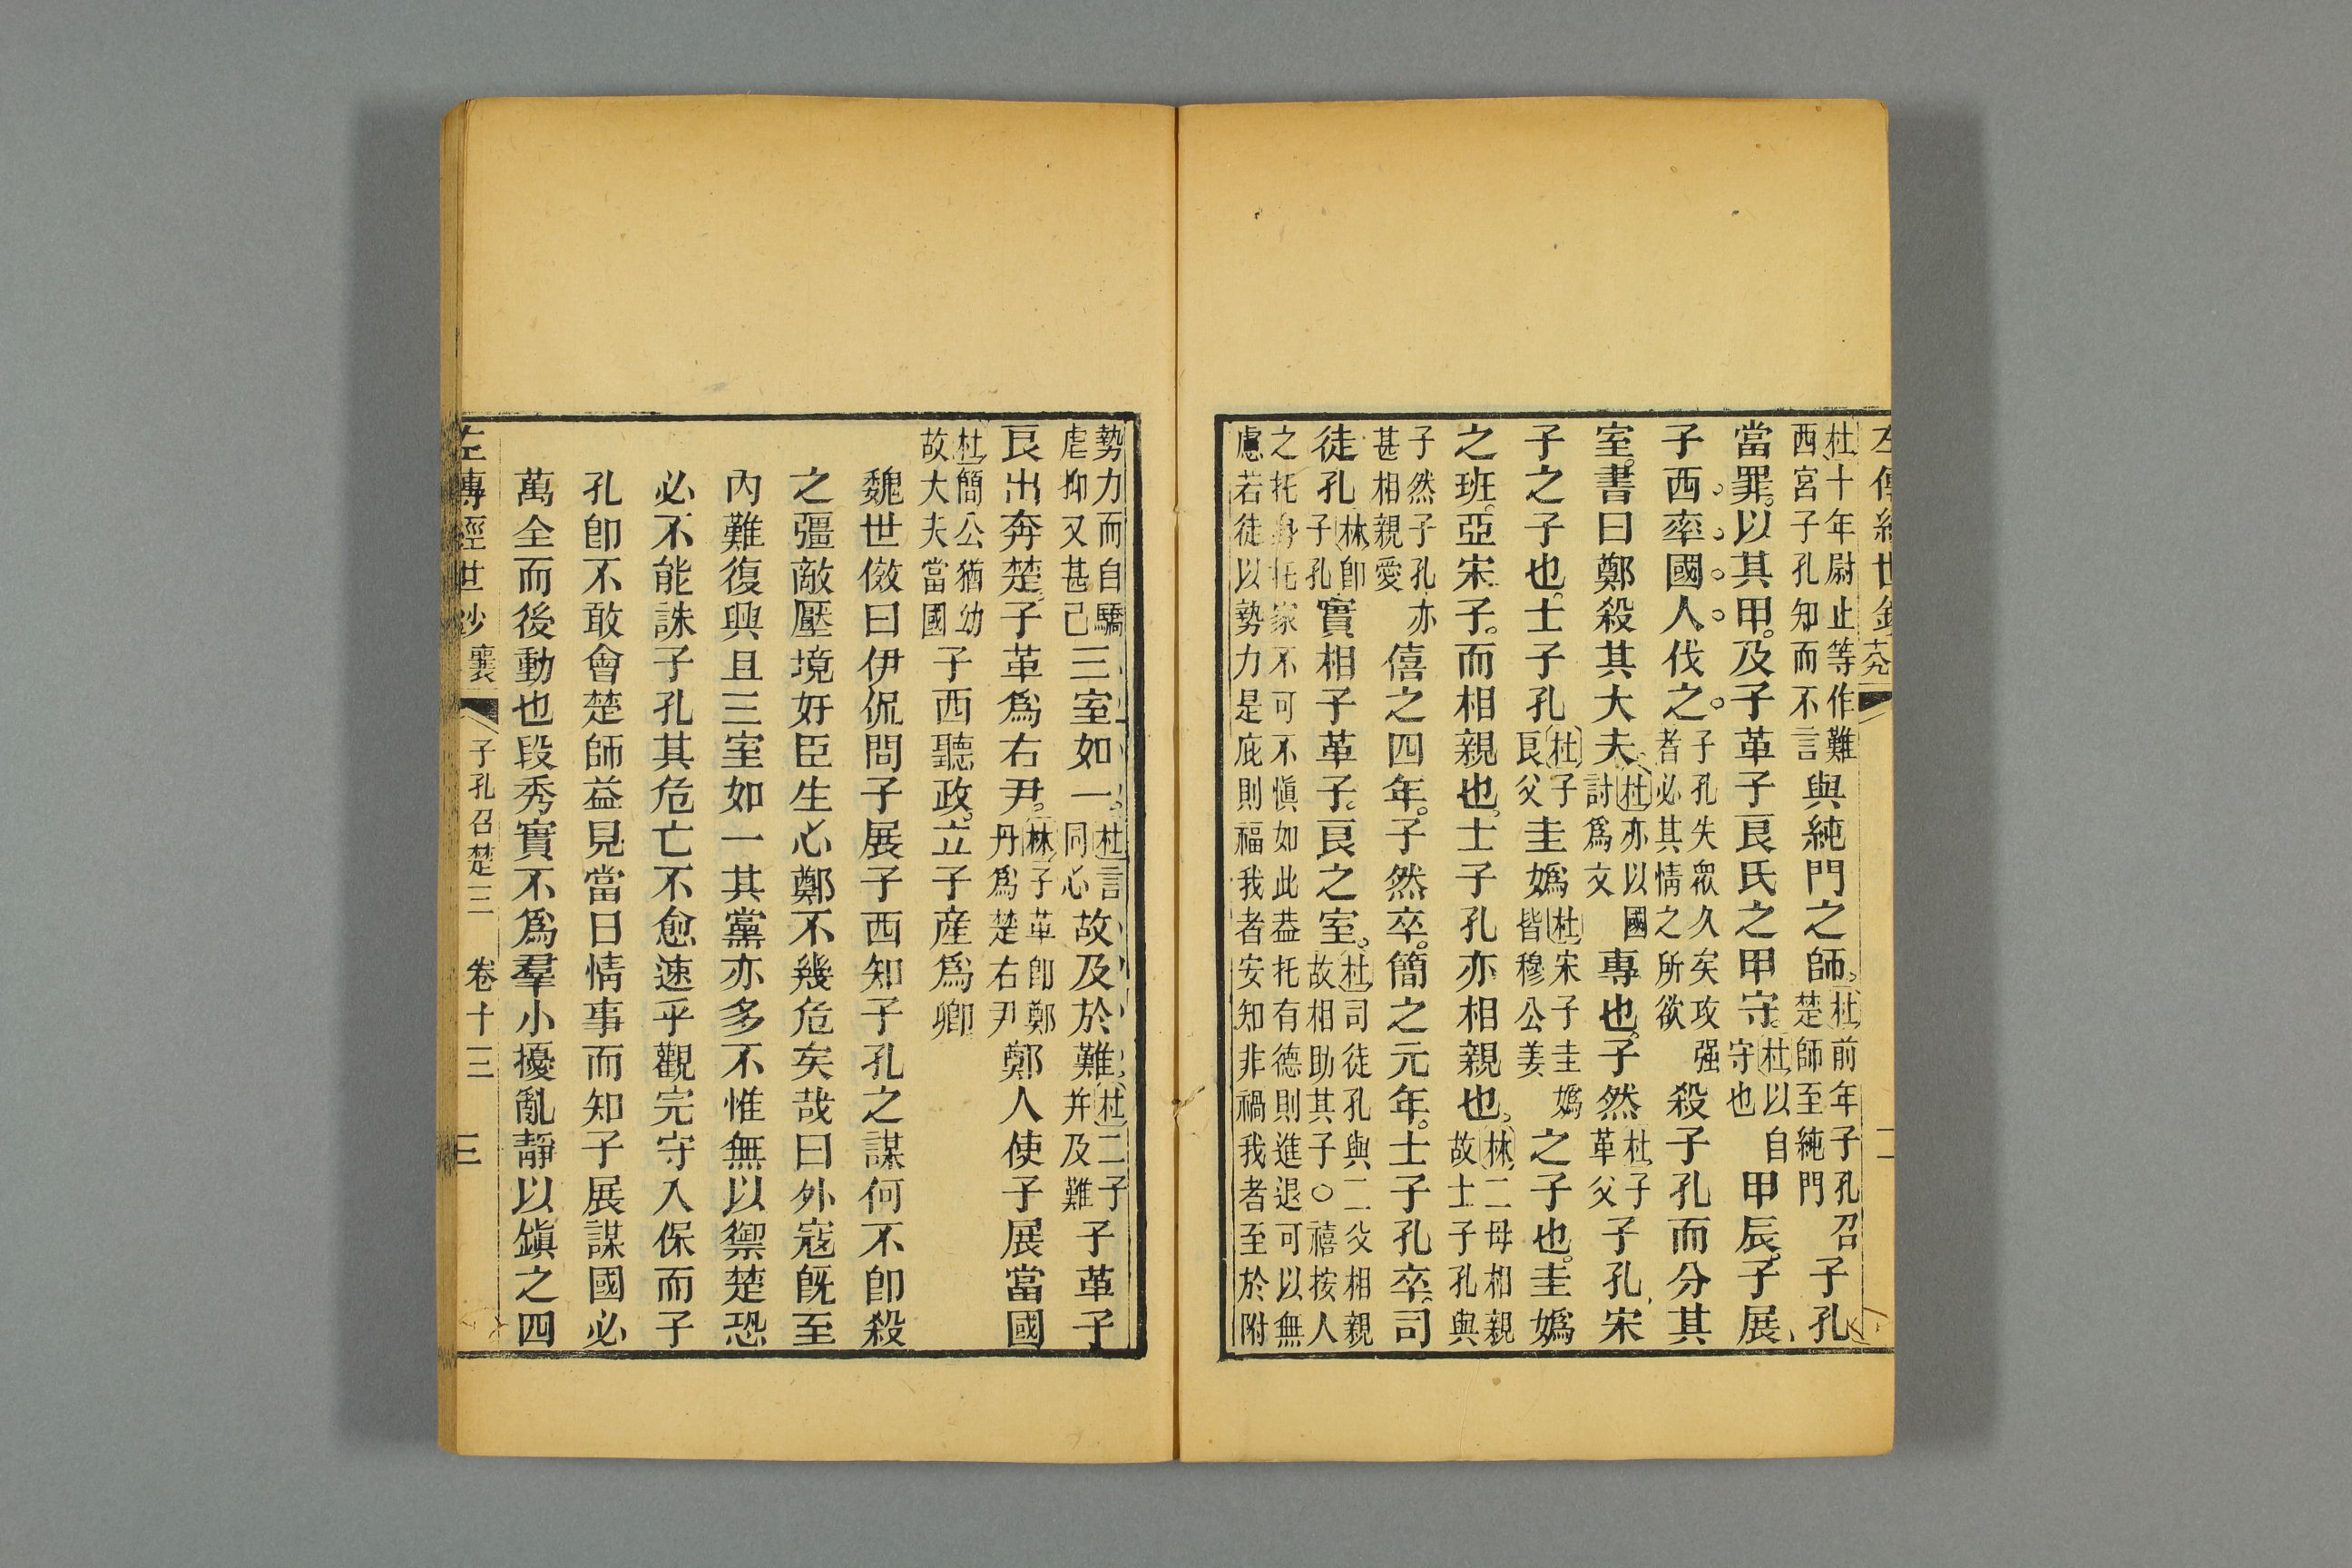 左傳經世鈔
二
杜十年尉止等作難
西宮子孔知而不言
與純門之師
杜前年子孔召
楚師至純門
子孔
當罪以其甲及子革子良氏之甲守
杜以自
守也
甲辰子展
子西率國人伐之
子孔失衆久矣攻强
者必其情之所欲
殺子孔而分其
室書曰鄭殺其大夫
杜亦以國
討爲文
專也子然
杜子
革父
子孔宋
子之子也士子孔
杜子
良父
圭嬀
杜宋子圭嬀
皆穆公姜
之子也圭嬀
之班亞宋子而相親也士子孔亦相親也
林二母相親
故士子孔與
子然子孔亦
甚相親愛
僖之四年子然卒簡之元年士子孔卒司
徒孔
林卽
子孔
實相子革子良之室
杜司徒孔與二父相親
故相助其子○禧按人
之托身托家不可不愼如此葢托有德則進退可以無
慮若徒以勢力是庇則福我者安知非禍我者至於附
勢力而自驕
虐抑又甚己
三室如一
杜言
同心
故及於難
杜二子
并及難
子革子
良出奔楚子革爲右尹
林子革卽鄭
丹爲楚右尹
鄭人使子展當國
杜簡公猶幼
故大夫當國
子西聽政立子産爲卿
魏世傚曰伊侃問子展子西知子孔之謀何不卽殺
之彊敵壓境奸臣生心鄭不幾危矣哉曰外寇旣至
內難復興且三室如一其黨亦多不惟無以禦楚恐
必不能誅子孔其危亡不愈速乎觀完守入保而子
孔卽不敢會楚師益見當日情事而知子展謀國必
萬全而後動也段秀實不爲羣小擾亂靜以鎭之四
左傳經世鈔
襄
子孔召楚三
卷十三
三